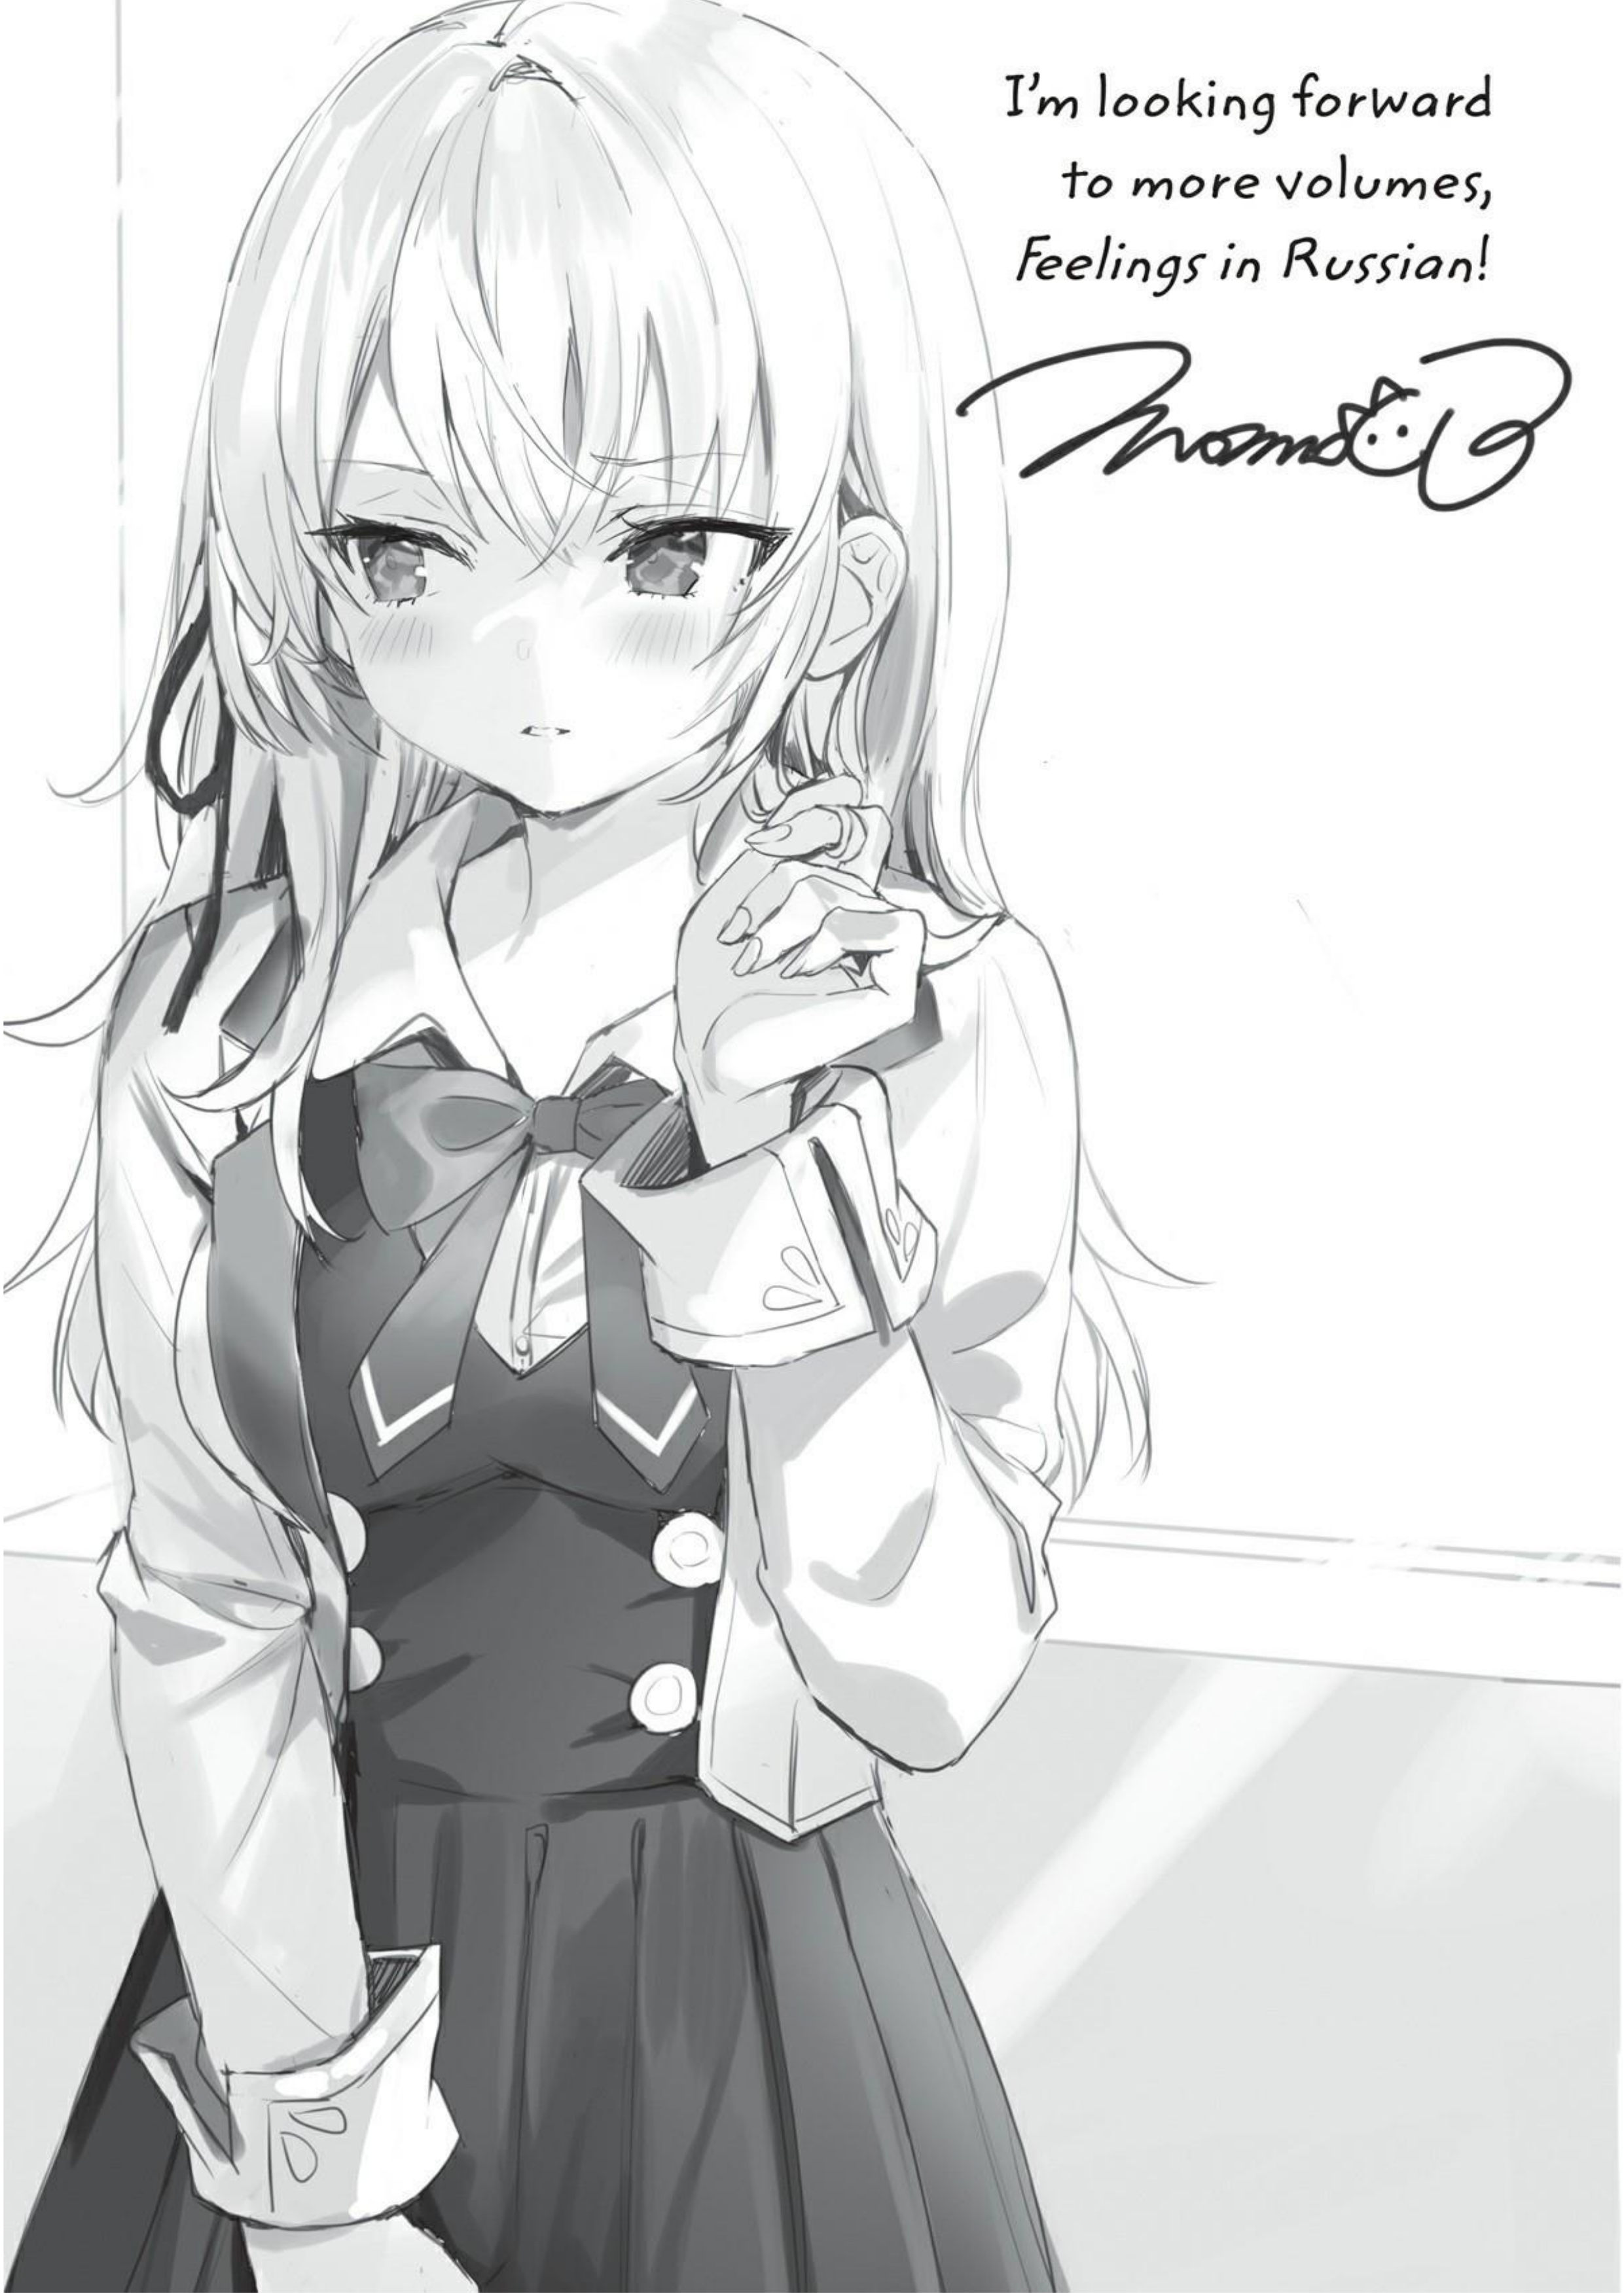 I'm looking forward
to more volumes,
Feelings in Russian!